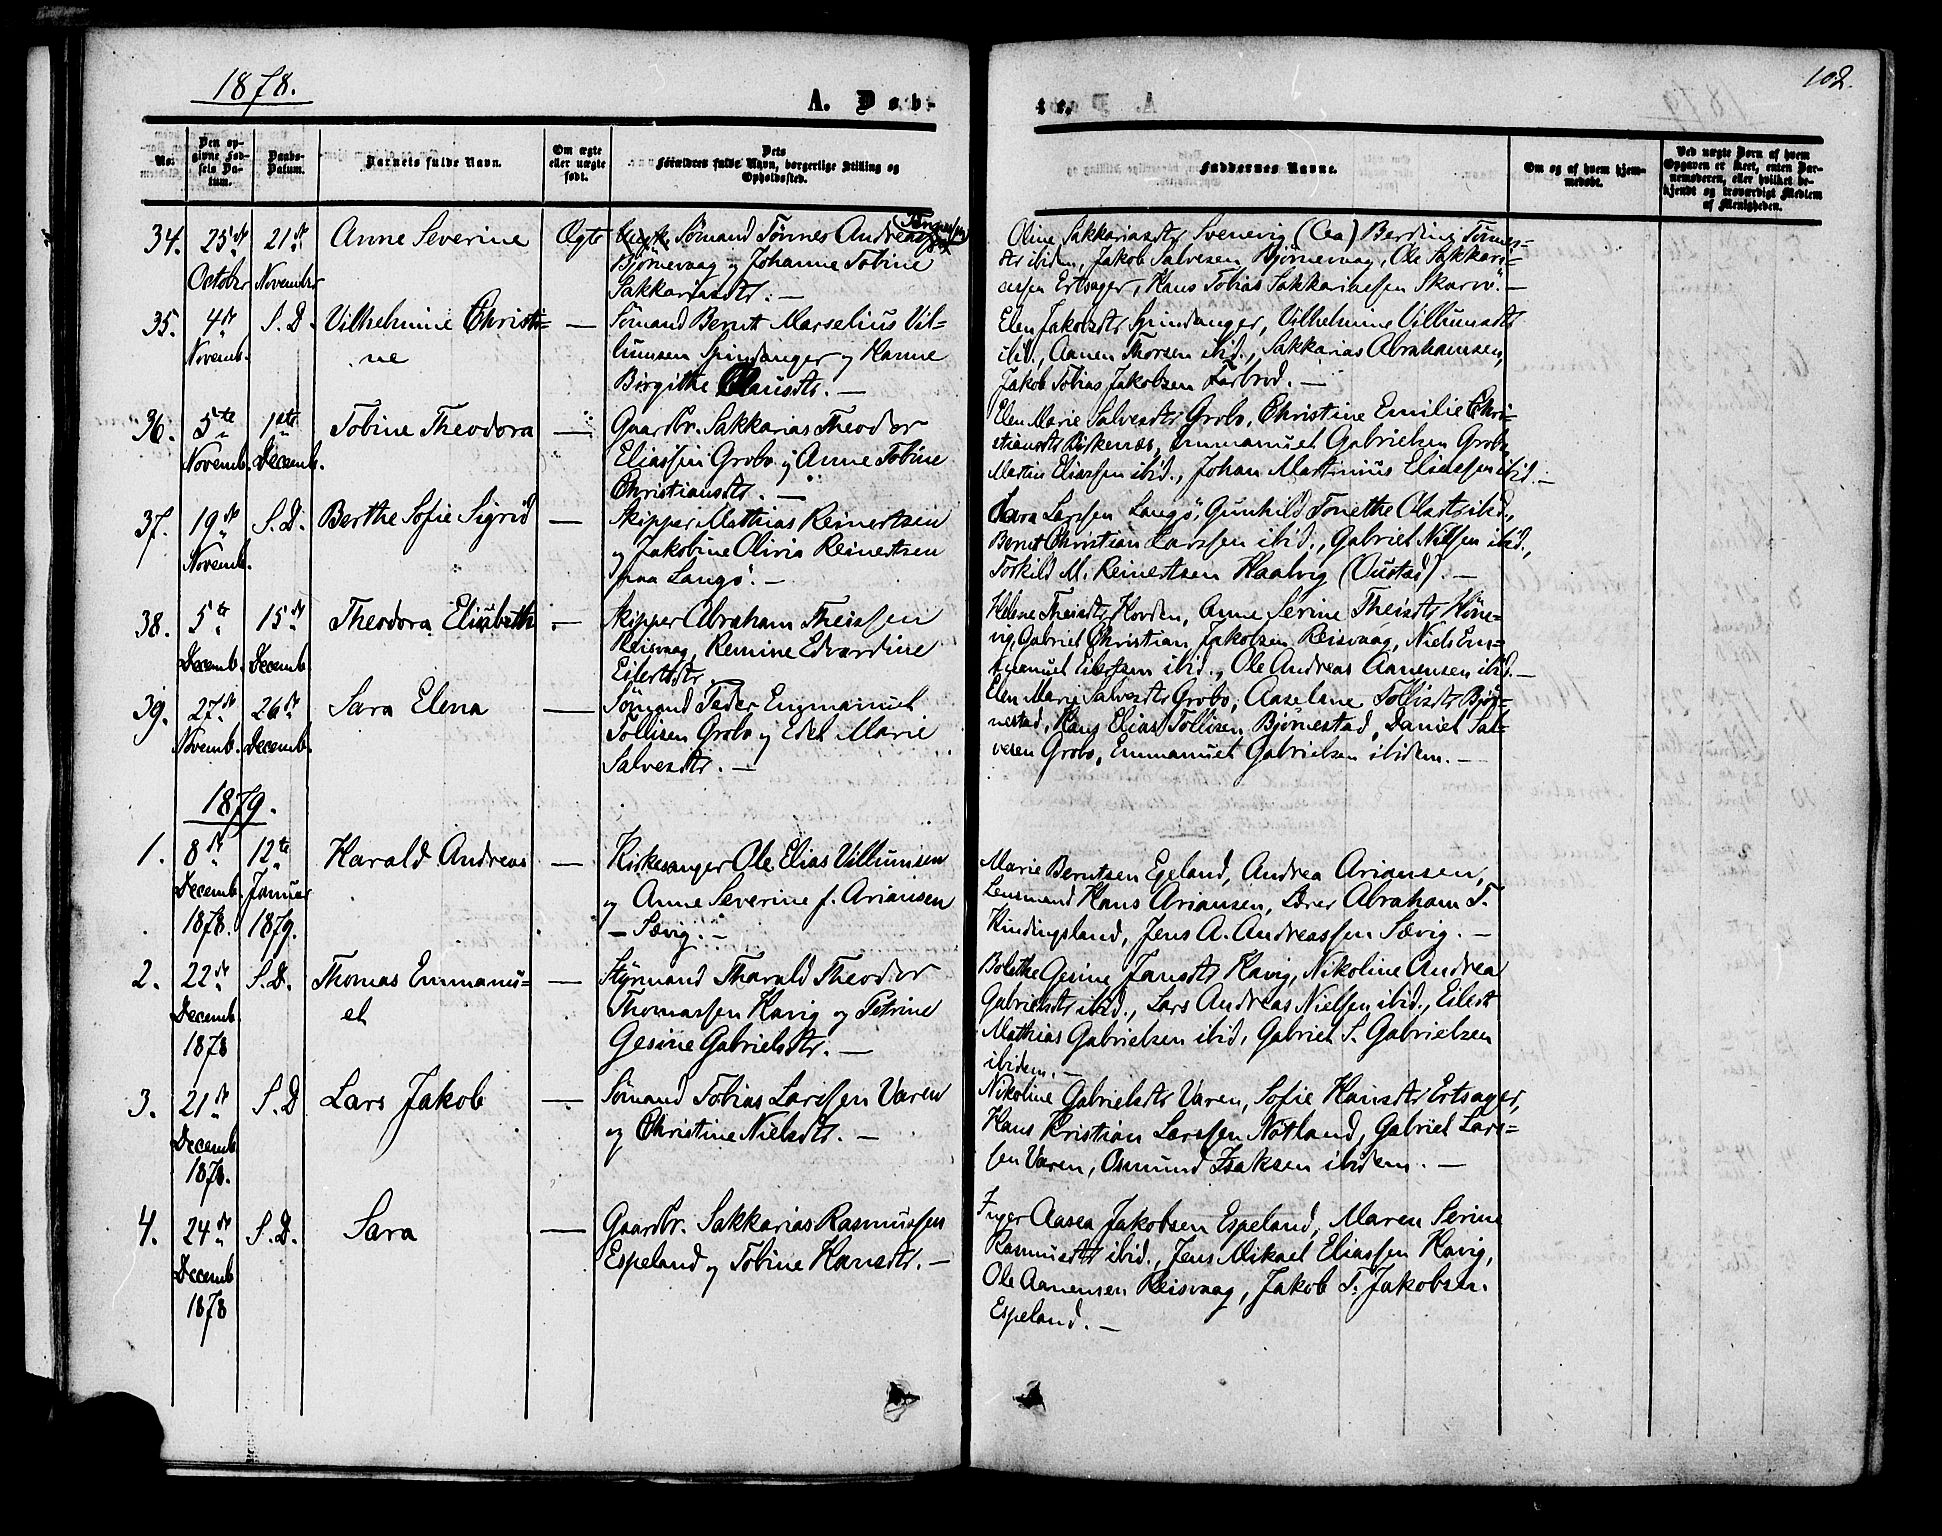 1878.
A. Døb-
te.
102.
No.
Den opgivne Fødsels Datum.
Daabs-Datum.
Barnets fulde Navn.
Om ægte eller uægte født.
Dets Forældres fulde Navn, borgerlige Stilling og Opholdssted.
Faddernes Navne.
Om og af hvem hjemmedøbt.
Ved uægte Børn af hvem Opgaven er skeet, enten Barnemoderen, eller hvilket bekjendt og troværdigt Medlem af Menigheden.
34. 25de October 21de November Anne Severine Ægte
Sømand Tønnes Andreas
Bjørnevaag og Johanne Tobine
Sakkariasdtr. —
Oline Sakkariasdtr Svenevig (Aa) Berdine Tønnes-
dtr ibidem, Jakob Salvesen Bjørnevaag, Ole Sakkari-
assen Ertsager, Hans Tobias Sakkariassen Skarvø. —
35. 4de Novemb. S. D. Vilhelmine Christi-
ne —
Sømand Bernt Marselius Vil-
lumsen Spindanger og Hanne
Birgithe Clausdtr. —
Elen Jakobsdtr Spindanger, Vilhelmine Villumsdtr
ibid., Aanen Thorsen ibid., Sakkarias Abrahamsen,
Jakob Tobias Jakobsen Farbrod. —
36. 5te Novemb. 1ste Decemb. Tobine Theodora —
Gaardbr. Sakkarias Theodor
Eliassen Grobo og Anne Tobine
Christiansdtr. —
Elen Marie Salvesdtr Grobo, Christine Emilie Chri-
stiansdtr Birkenes, Emmanuel Gabrielsen Grobo,
Martin Eliassen ibid., Johan Martinius Eliassen ibid. —
37. 19de Novemb. S. D. Berthe Sofie Sigrid —
Skipper Mathias Reinertsen
og Jakobine Olivia Reinertsen
paa Langø. —
Lara Larssen Langø, Gunhild Tonethe Olasdtr ibid.,
Bernt Christian Larssen ibid., Gabriel Nilsen ibid.,
Torkild M. Reinertsen Haalvig (Oustad). —
38. 5te Decemb. 15de Decemb. Theodora Elisabeth —
Skipper Abraham Theissen
Reisvaag, Remine Edvardine
Eilertsdtr
Helene Theisdtr Hovden, Anne Serine Theisdtr Høne-
vig, Gabriel Christian Jakobsen Reisvaag, Niels Em-
manuel Eilertsen ibid., Ole Andreas Aanensen ibid. —
39. 27de Novemb. 26de Decemb. Sara Elena —
Sømand Peder Emmanuel
Tollisen Grobo og Edel Marie
Salvesdtr. —
Elen Marie Salvesdtr Grobo, Aaselene Tollisdtr Bjør-
nestad, Hans Elias Tollisen Bjørnestad, Daniel Sal-
vesen Grobo, Emmanuel Gabrielsen ibidem. —
1879.
1. 8de Decemb. 1878. 12te Januar 1879. Harald Andreas —
Kirkesanger Ole Elias Villumsen
og Anne Severine f. Ariansen
— Sævig. —
Marie Berntsen Egeland, Andrea Ariansen,
Lensmand Hans Ariansen, Lærer Abraham T.
Kindingsland, Jens A. Andreassen Sævig. —
2. 22de Decemb. 1878 S. D. Thomas Emmanu-
el —
Styrmand Tharald Theodor
Thomassen Havig og Petrine
Gesine Gabrielsdtr. —
Bolethe Gesine Jansdtr Havig, Nikoline Andrea
Gabrielsdtr ibid., Lars Andreas Nielsen ibid., Eilert
Mathias Gabrielsen ibid, Gabriel S. Gabrielsen
ibidem. —
3. 21de Decemb 1878. S. D Lars Jakob —
Sømand Tobias Larssen Varen
og Christine Nielsdtr. —
Nikoline Gabrielsdtr Varen, Sofie Hansdtr Ertsager,
Hans Kristian Larssen Nøtland, Gabriel Lars-
sen Varen, Osmund Isaksen ibidem. —
4. 24de Decemb 1878 S. D. Sara —
Gaardbr. Sakkarias Rasmussen
Espeland og Tobine Hansdtr. —
Inger Aasea Jakobsen Espeland, Maren Serine
Rasmusdtr ibid., Jens Mikael Eliassen Havig,
Ole Aanensen Reisvaag, Jakob T. Jakobsen
Espeland. —